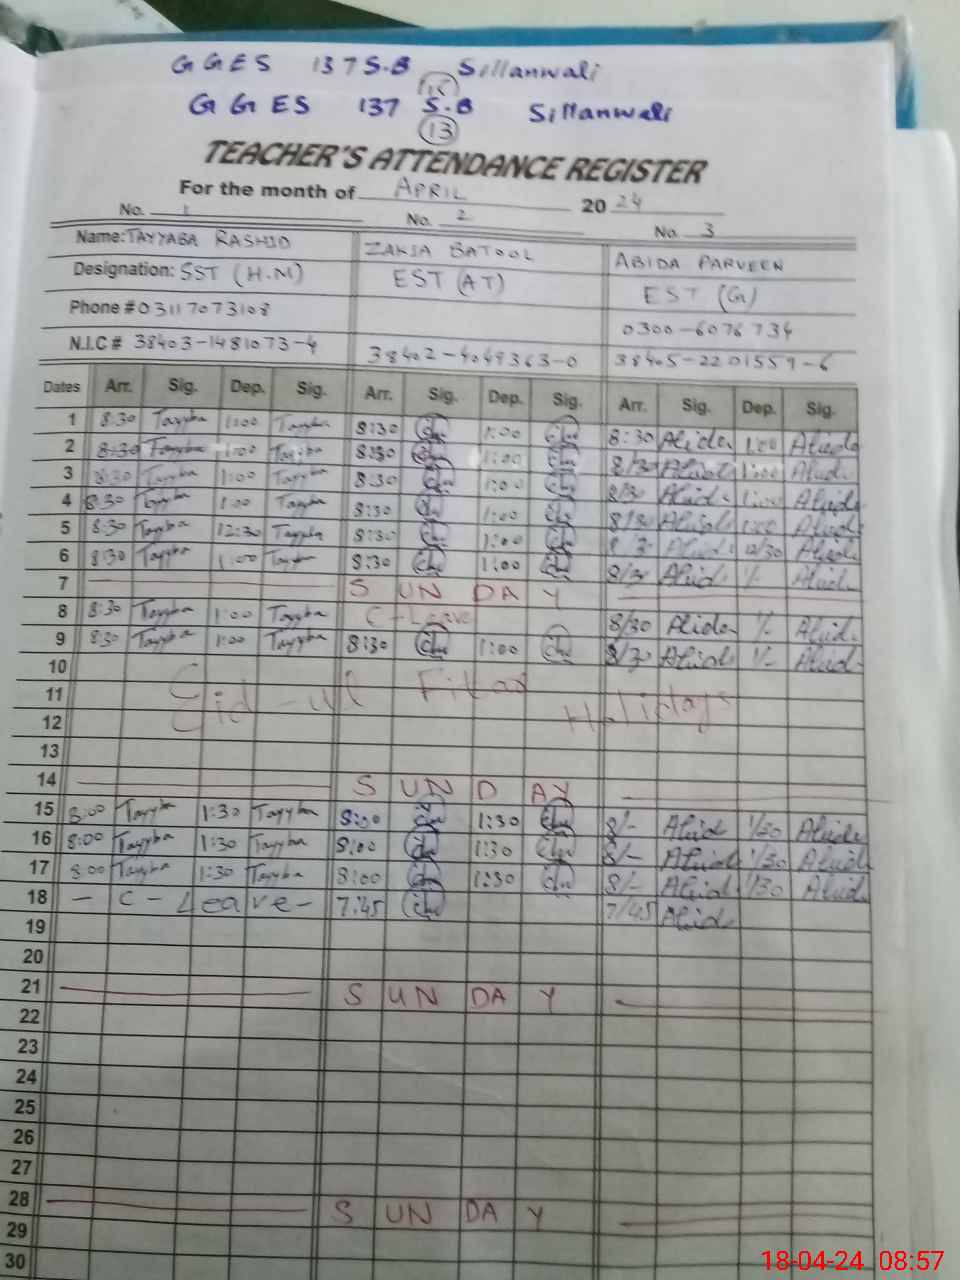 G G E S 137 S.B Sillanwali
15
G G E S 137 S.B Sillanwali
13
TEACHER'S ATTENDANCE REGISTER
For the month of APRIL 20 24
No. 1 No. 2 No. 3
Name: TAYYABA RASHID ZAKIA BATOOL ABIDA PARVEEN
Designation: SST (H.M) EST (AT) EST (G)
Phone # 03117073108 0300-6076734
N.I.C # 38403-1481073-4 38402-4049363-0 38405-2201559-6
Dates Arr. Sig. Dep. Sig. Arr. Sig. Dep. Sig. Arr. Sig. Dep. Sig.
1 8:30 Tayyba 1:00 Tayyba 8:30 1:00 8:30 Abida 1:00 Abida
2 8:30 Tayyba 1:00 Tayyba 8:30 1:00 8/30 Abida 1:00 Abida
3 8:30 Tayyba 1:00 Tayyba 8:30 1:00 8/30 Abida 1:00 Abida
4 8:30 Tayyba 1:00 Tayyba 8:30 1:00 8/30 Abida 1:00 Abida
5 8:30 Tayyba 12:30 Tayyba 8:30 1:00 Abida 12/30 Abida
6 8:30 Tayyba 1:00 Tayyba 8:30 1:00 Abida 1/- Abida
7 S UN DA Y
8 8:30 Tayyba 1:00 Tayyba C-Leave 8/30 Abida 1/- Abida
9 8:30 Tayyba 1:00 Tayyba 8:30 1:00 8/30 Abida 1/- Abida
10
11 Eid-ul Fitar Holidays
12
13
14 S UN D AY
15 8:00 Tayyba 1:30 Tayyba 8:00 1:30 8/- Abida 1/30 Abida
16 8:00 Tayyba 1:30 Tayyba 8:00 1:30 8/- Abida 1/30 Abida
17 8:00 Tayyba 1:30 Tayyba 8:00 1:30 8/- Abida 1/30 Abida
18 - C - Leave - 7:45 7/45 Abida
19
20
21 S UN DA Y
22
23
24
25
26
27
28 S UN DA Y
29
30
18-04-24 08:57